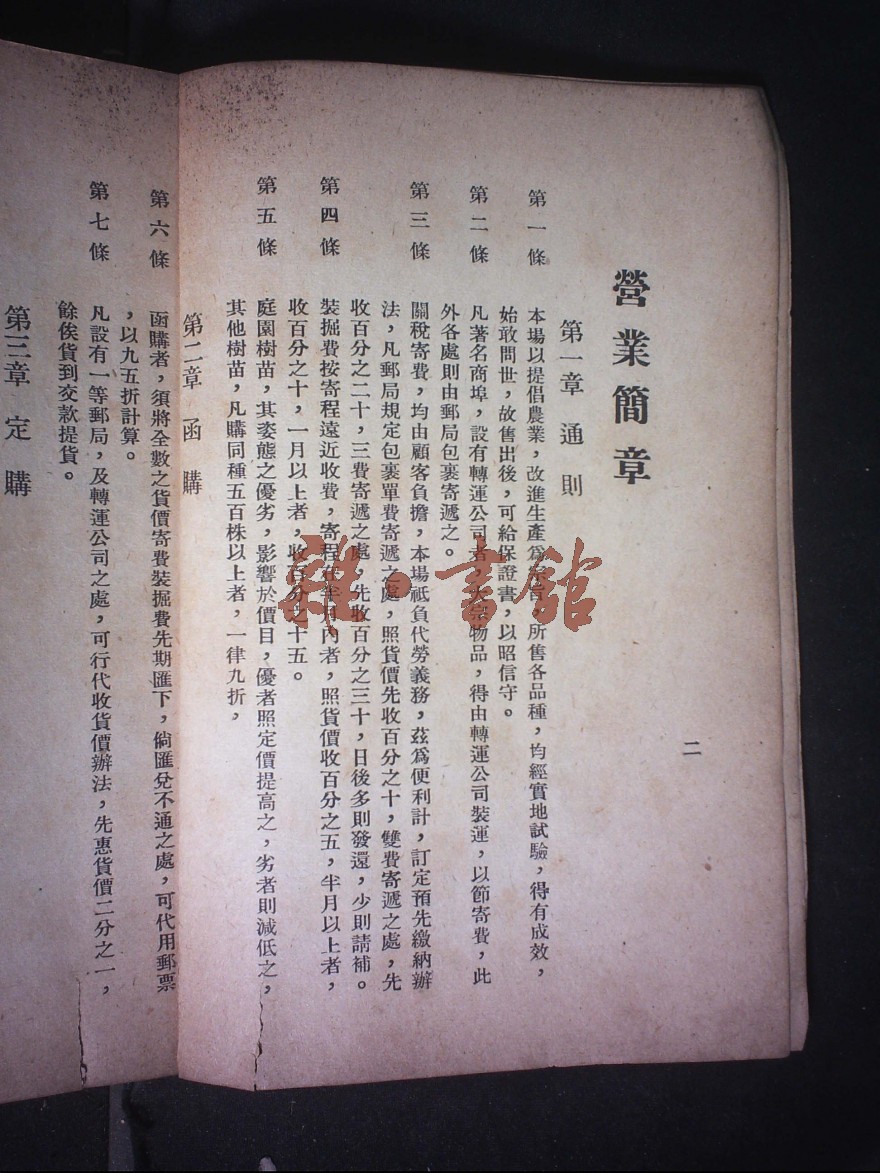 營業簡章
第一章 通則
第一條 本場以提倡農業，改進生產爲宗旨，所售各品種，均經實地試驗，得有成效，
始敢問世，故售出後，可給保證書，以昭信守。
第二條 凡著名商埠，設有轉運公司者，大宗物品，得由轉運公司裝運，以節寄費，此
外各處則由郵局包裹寄遞之。
第三條 關稅寄費，均由顧客負擔，本場祇負代勞義務，茲爲便利計，訂定預先繳納辦
法，凡郵局規定包裹單費寄遞之處，照貨價先收百分之十，雙費寄遞之處，先
收百分之二十，三費寄遞之處，先收百分之三十，日後多則發還，少則請補。
第四條 裝掘費按寄程遠近收費，寄程在半月內者，照貨價收百分之五，半月以上者，
收百分之十，一月以上者，收百分之十五。
第五條 庭園樹苗，其姿態之優劣，影響於價目，優者照定價提高之，劣者則減低之，
其他樹苗，凡購同種五百株以上者，一律九折，
第二章 函購
第六條 函購者，須將全數之貨價寄費裝掘費先期匯下，倘匯兌不通之處，可代用郵票
，以九五折計算。
第七條 凡設有一等郵局，及轉運公司之處，可行代收貨價辦法，先惠貨價二分之一，
餘俟貨到交款提貨。
第三章 定購
二
雜·書館